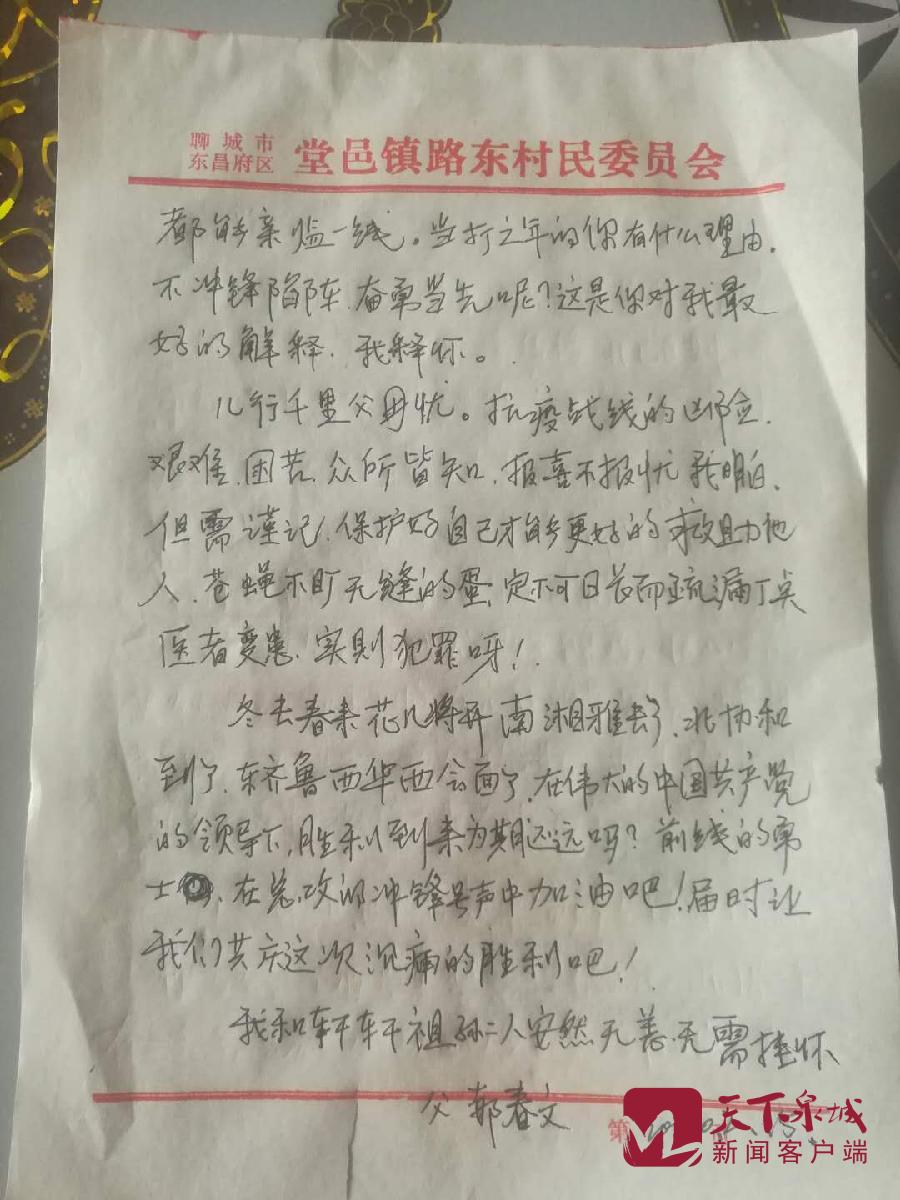 聊城市
东昌府区 堂邑镇路东村民委员会
都能亲临一线。当打之年的你有什么理由.
不冲锋陷阵.奋勇当先呢?这是你对我最
好的解释.我释怀。
儿行千里父母忧。抗疫战线的凶险.
艰难.困苦.众所皆知.报喜不报忧我明白.
但需谨记.保护好自己才能更好的救助他
人.苍蝇不盯无缝的蛋.定不可日长而疏漏丁点
医者变患.实则犯罪呀!
冬去春来花儿将开南湘雅去了.北协和
到了.东齐鲁西华西会面了.在伟大的中国共产党
的领导下,胜利到来为期还远吗?前线的勇
士.在总攻的冲锋号声中加油吧!届时让
我们共庆这次沉痛的胜利吧!
我和轩轩祖孙二人安然无恙.无需挂怀
父 郝春文
第
天下泉城
新闻客户端